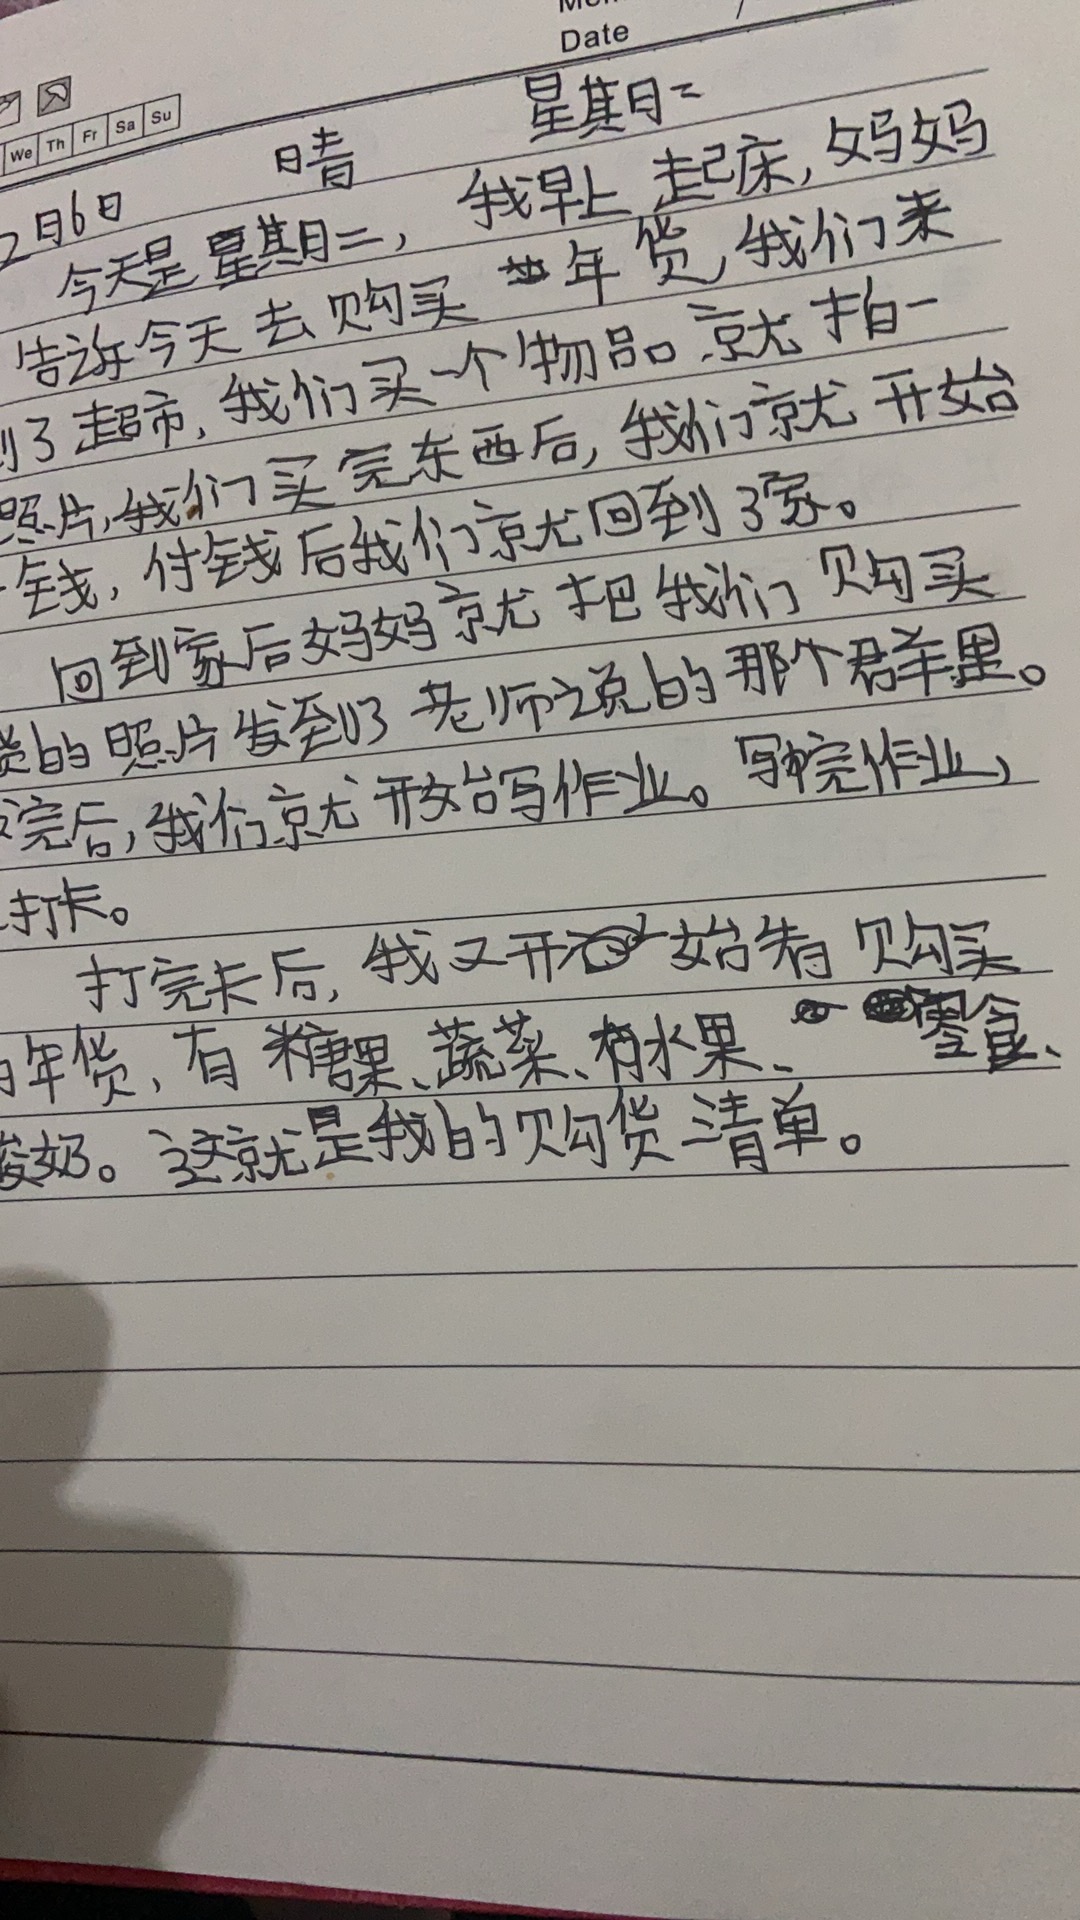 Date
We Th Fr Sa Su
2月6日 晴 星期二
今天是星期二，我早上起床，妈妈
告诉今天去购买年货，我们来
到了超市，我们买一个物品就拍一
照片，我们买完东西后，我们就开始
钱，付钱后我们就回到了家。
回到家后妈妈就把我们购买
货的照片发到了老师说的那个群里。
完后，我们就开始写作业。写完作业，
打卡。
打完卡后，我又开始看购买
的年货，有糖果、蔬菜、有水果、零食、
酸奶。这就是我的购货清单。